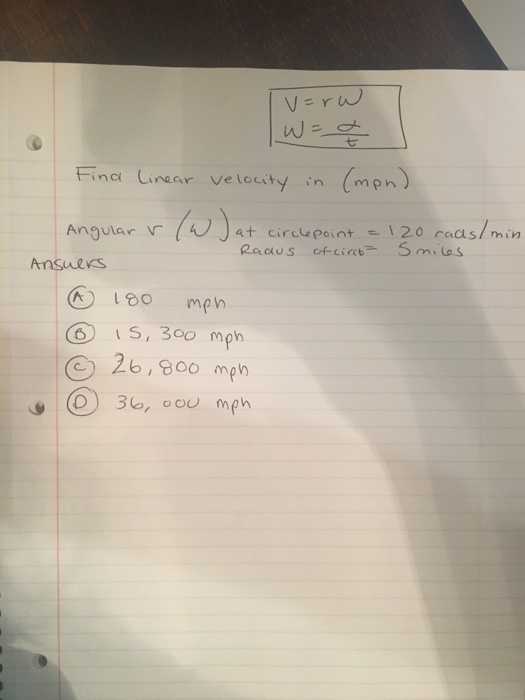 V = rω
ω = α/t
Find linear velocity in (mph)
Angular v (ω) at circlepoint = 120 rads/min
Radius of circle = 5 miles
Answers
(A) 180 mph
(B) 15,300 mph
(C) 26,800 mph
(D) 36,000 mph